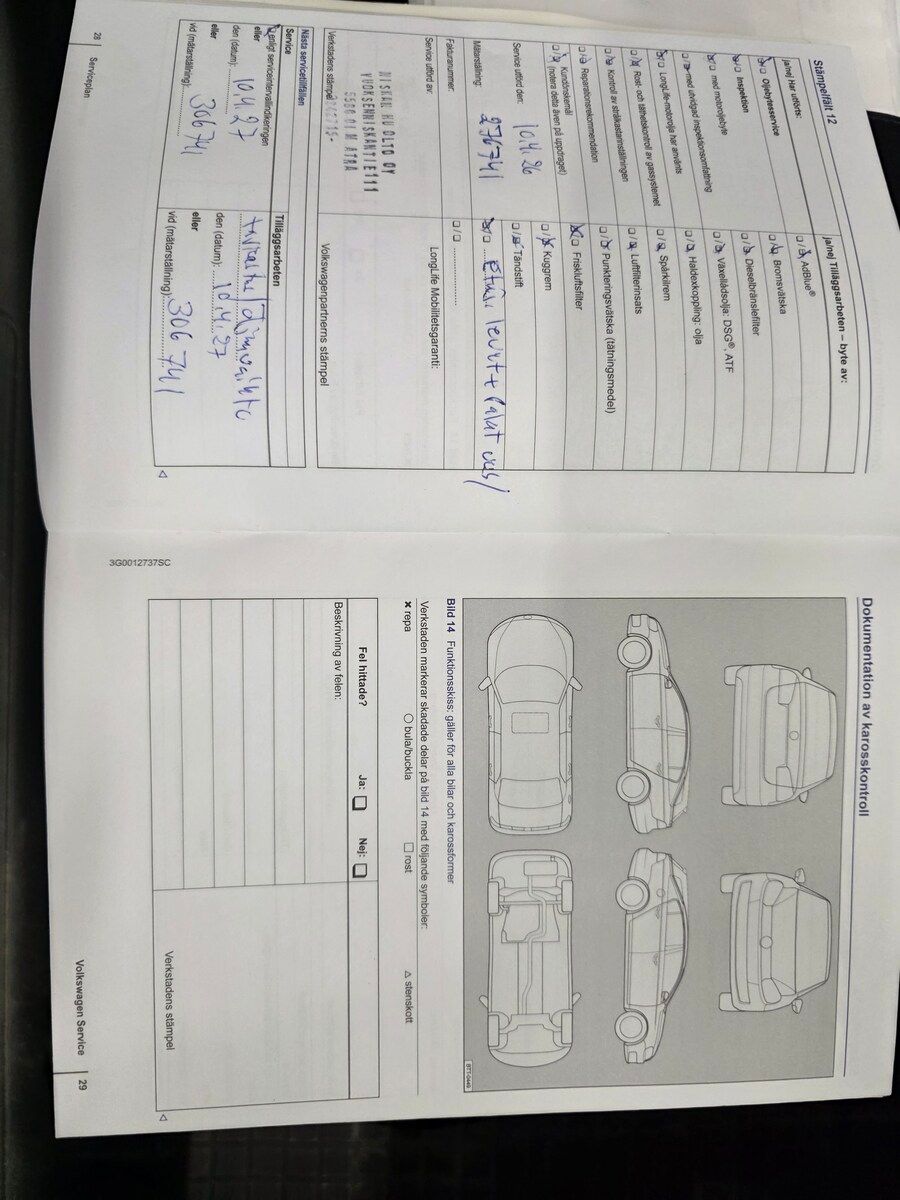 Stämpelfält 12
ja/nej Har utförts:
☒/☐ Oljebytesservice
Inspektion
med motoroljebyte
med utvidgad inspektionsomfattning
LongLife-motorolja har använts
Rost- och täthetskontroll av gassystemet
Kontroll av strålkastarinställningen
Reparationsrekommendation
Kundönskemål
(notera detta även på uppdraget)
Service utförd den:
10.4.26
Mätarställning:
276741
Fakturanummer:
Service utförd av:
Verkstadens stämpel
NISKAN HUOLTO OY
VUOKSENNISKANTIE 111
55800 IMATRA
ja/nej Tilläggsarbeten – byte av:
☐/☒ AdBlue®
☐/☒ Bromsvätska
☐/☒ Dieselbränslefilter
☐/☒ Växellådsolja: DSG®, ATF
☐/☒ Haldexkoppling: olja
☐/☒ Spårkilrem
☐/☒ Luftfilterinsats
☐/☒ Punkteringsvätska (tätningsmedel)
☒/☐ Friskluftsfilter
☐/☒ Kuggrem
☐/☒ Tändstift
☒/☐ Etu levyt + palat uus/
☐/☐ ................
LongLife Mobilitetsgaranti:
Volkswagenpartnerns stämpel
Nästa servicetillfällen
Service
enligt serviceintervallindikeringen
eller
den (datum): 10.4.27
eller
vid (mätarställning): 306741
Tilläggsarbeten
den (datum): 10.4.27
eller
vid (mätarställning): 306 741
28 | Serviceplan
3G0012737SC
Dokumentation av karosskontroll
BTT-0449
Bild 14 Funktionsskiss: gäller för alla bilar och karossformer
Verkstaden markerar skadade delar på bild 14 med följande symboler:
✖ repa ○ bula/buckla □ rost △ stenskott
Fel hittade? Ja: ☐ Nej: ☐
Beskrivning av felen:
Verkstadens stämpel
Volkswagen Service | 29